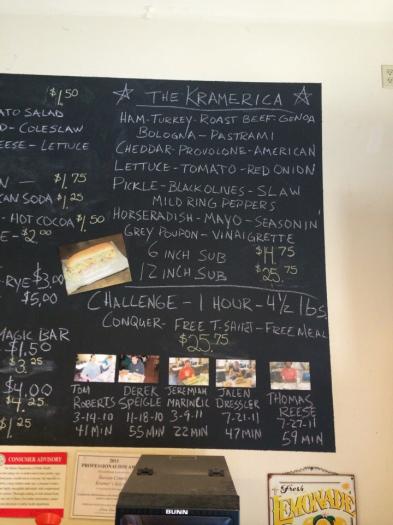 $1.50
ATO SALAD
D - COLESLAW
EESE - LETTUCE
N — $1.75
CAN SODA $1.25
- HOT COCOA $1.50
E - $2.00
- RYE $3.00
$5.00
MAGIC BAR
$1.50
$3.25
$4.00
$4.25
$1.25
☆ THE KRAMERICA ☆
HAM-TURKEY-ROAST BEEF-GENOA
BOLOGNA - PASTRAMI
CHEDDAR-PROVOLONE-AMERICAN
LETTUCE-TOMATO-RED ONION
PICKLE-BLACK OLIVES-SLAW
MILD RING PEPPERS
HORSERADISH-MAYO-SEASONIN'
GREY POUPON-VINAIGRETTE
6 INCH SUB $14.75
12 INCH SUB $25.75
CHALLENGE - 1 HOUR - 4 1/2 lbs.
CONQUER- FREE T-SHIRT-FREE MEAL
$25.75
TOM ROBERTS 3-14-10 41 MIN
DEREK SPEIGLE 11-18-10 55 MIN
JEREMIAH 3-9-11 22 MIN
JALEN DRESSLER 7-21-11 47 MIN
THOMAS REESE 7-27-11 59 MIN
CONSUMER ADVISORY
BUNN
LEMONADE